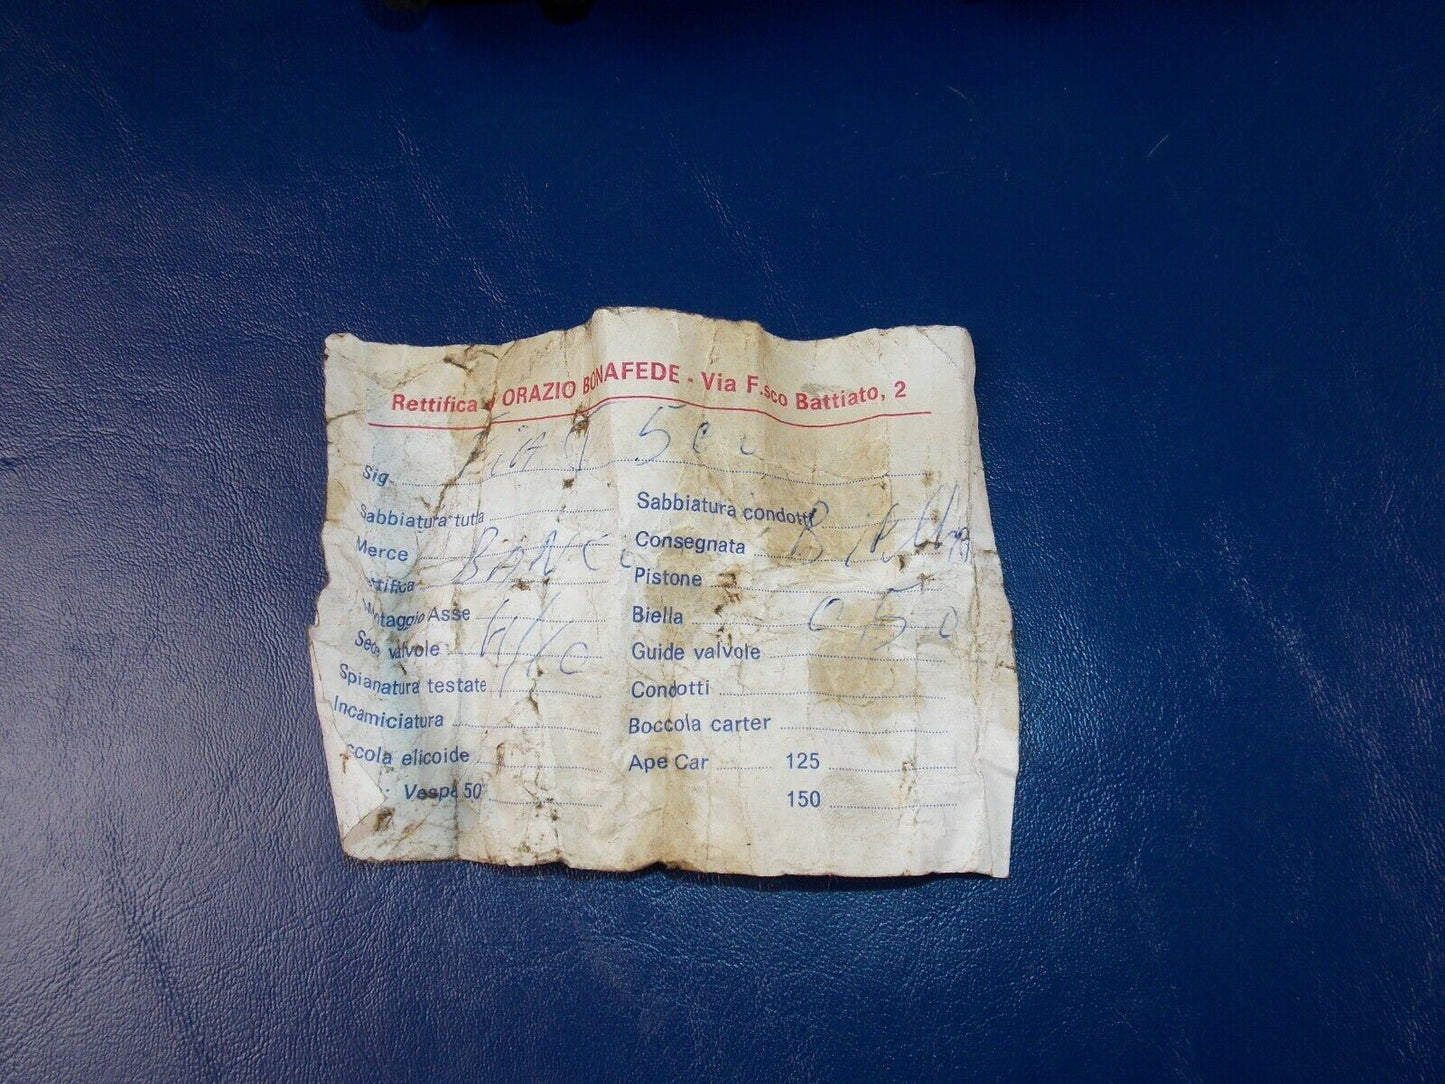 Rettifica ORAZIO BONAFEDE - Via F.sco Battiato, 2
Sig. FIAT 500
Sabbiatura tutta
Merce
BANCO
Montaggio Asse
Sede valvole
Spianatura testate
Incamiciatura
ccola elicoide
Vespa 50
Sabbiatura condotti
Consegnata Biella
Pistone
Biella 0,50
Guide valvole
Condotti
Boccola carter
Ape Car 125
150